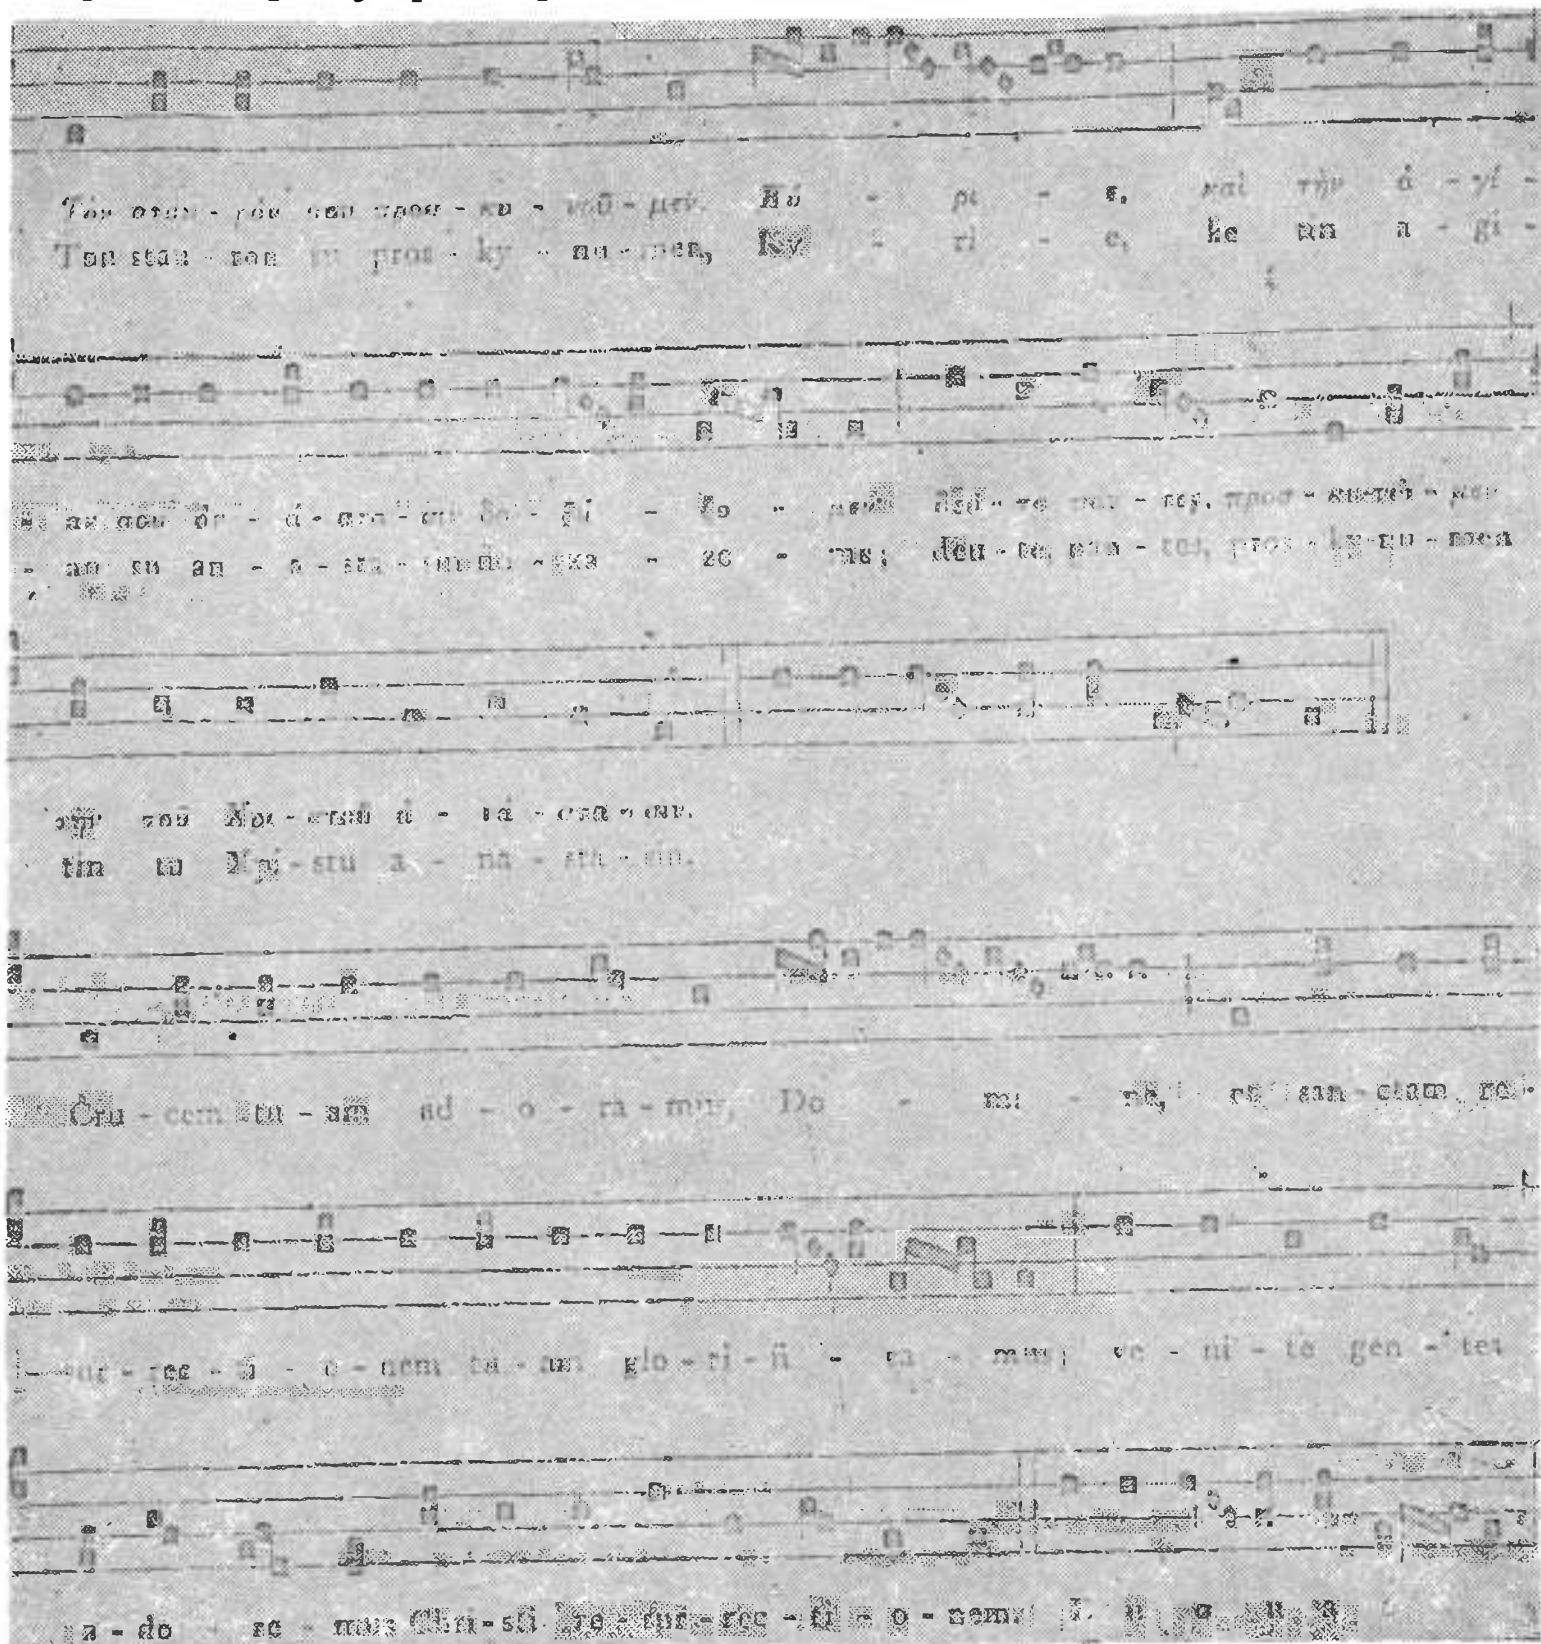 Τὸν σταυ - ρόν σου προσ - κυ - νοῦ - μεν, Κύ - ρι - ε, καὶ τὴν ἁ - γί -
Ton stau - ron su pros - ky - nu - men, Ky - ri - e, ke tin a - gi -
αν σου ἀν - ά - στα - σιν δο - ξά - ζο - μεν· δεῦ - τε πάν - τες, προσ - κυ - νοῦ - μεν
- an su an - a - sta - sin do - xa - zo - me; deu - te pan - tes, pros - ky - nu - men
τὴν τοῦ Χρι - στοῦ ἀ - νά - στα - σιν.
tin tu Xri - stu a - na - sta - sin.
Cru - cem tu - am ad - o - ra - mus, Do - mi - ne, et san - ctam re -
- sur - rec - ti - o - nem tu - am glo - ri - fi - ca - mus; ve - ni - te gen - tes
a - do - re - mus Chri - sti re - sur - rec - ti - o - nem.